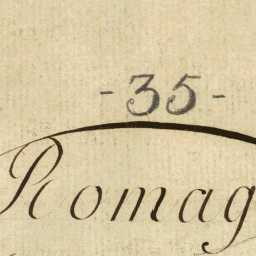 -35-
Romag